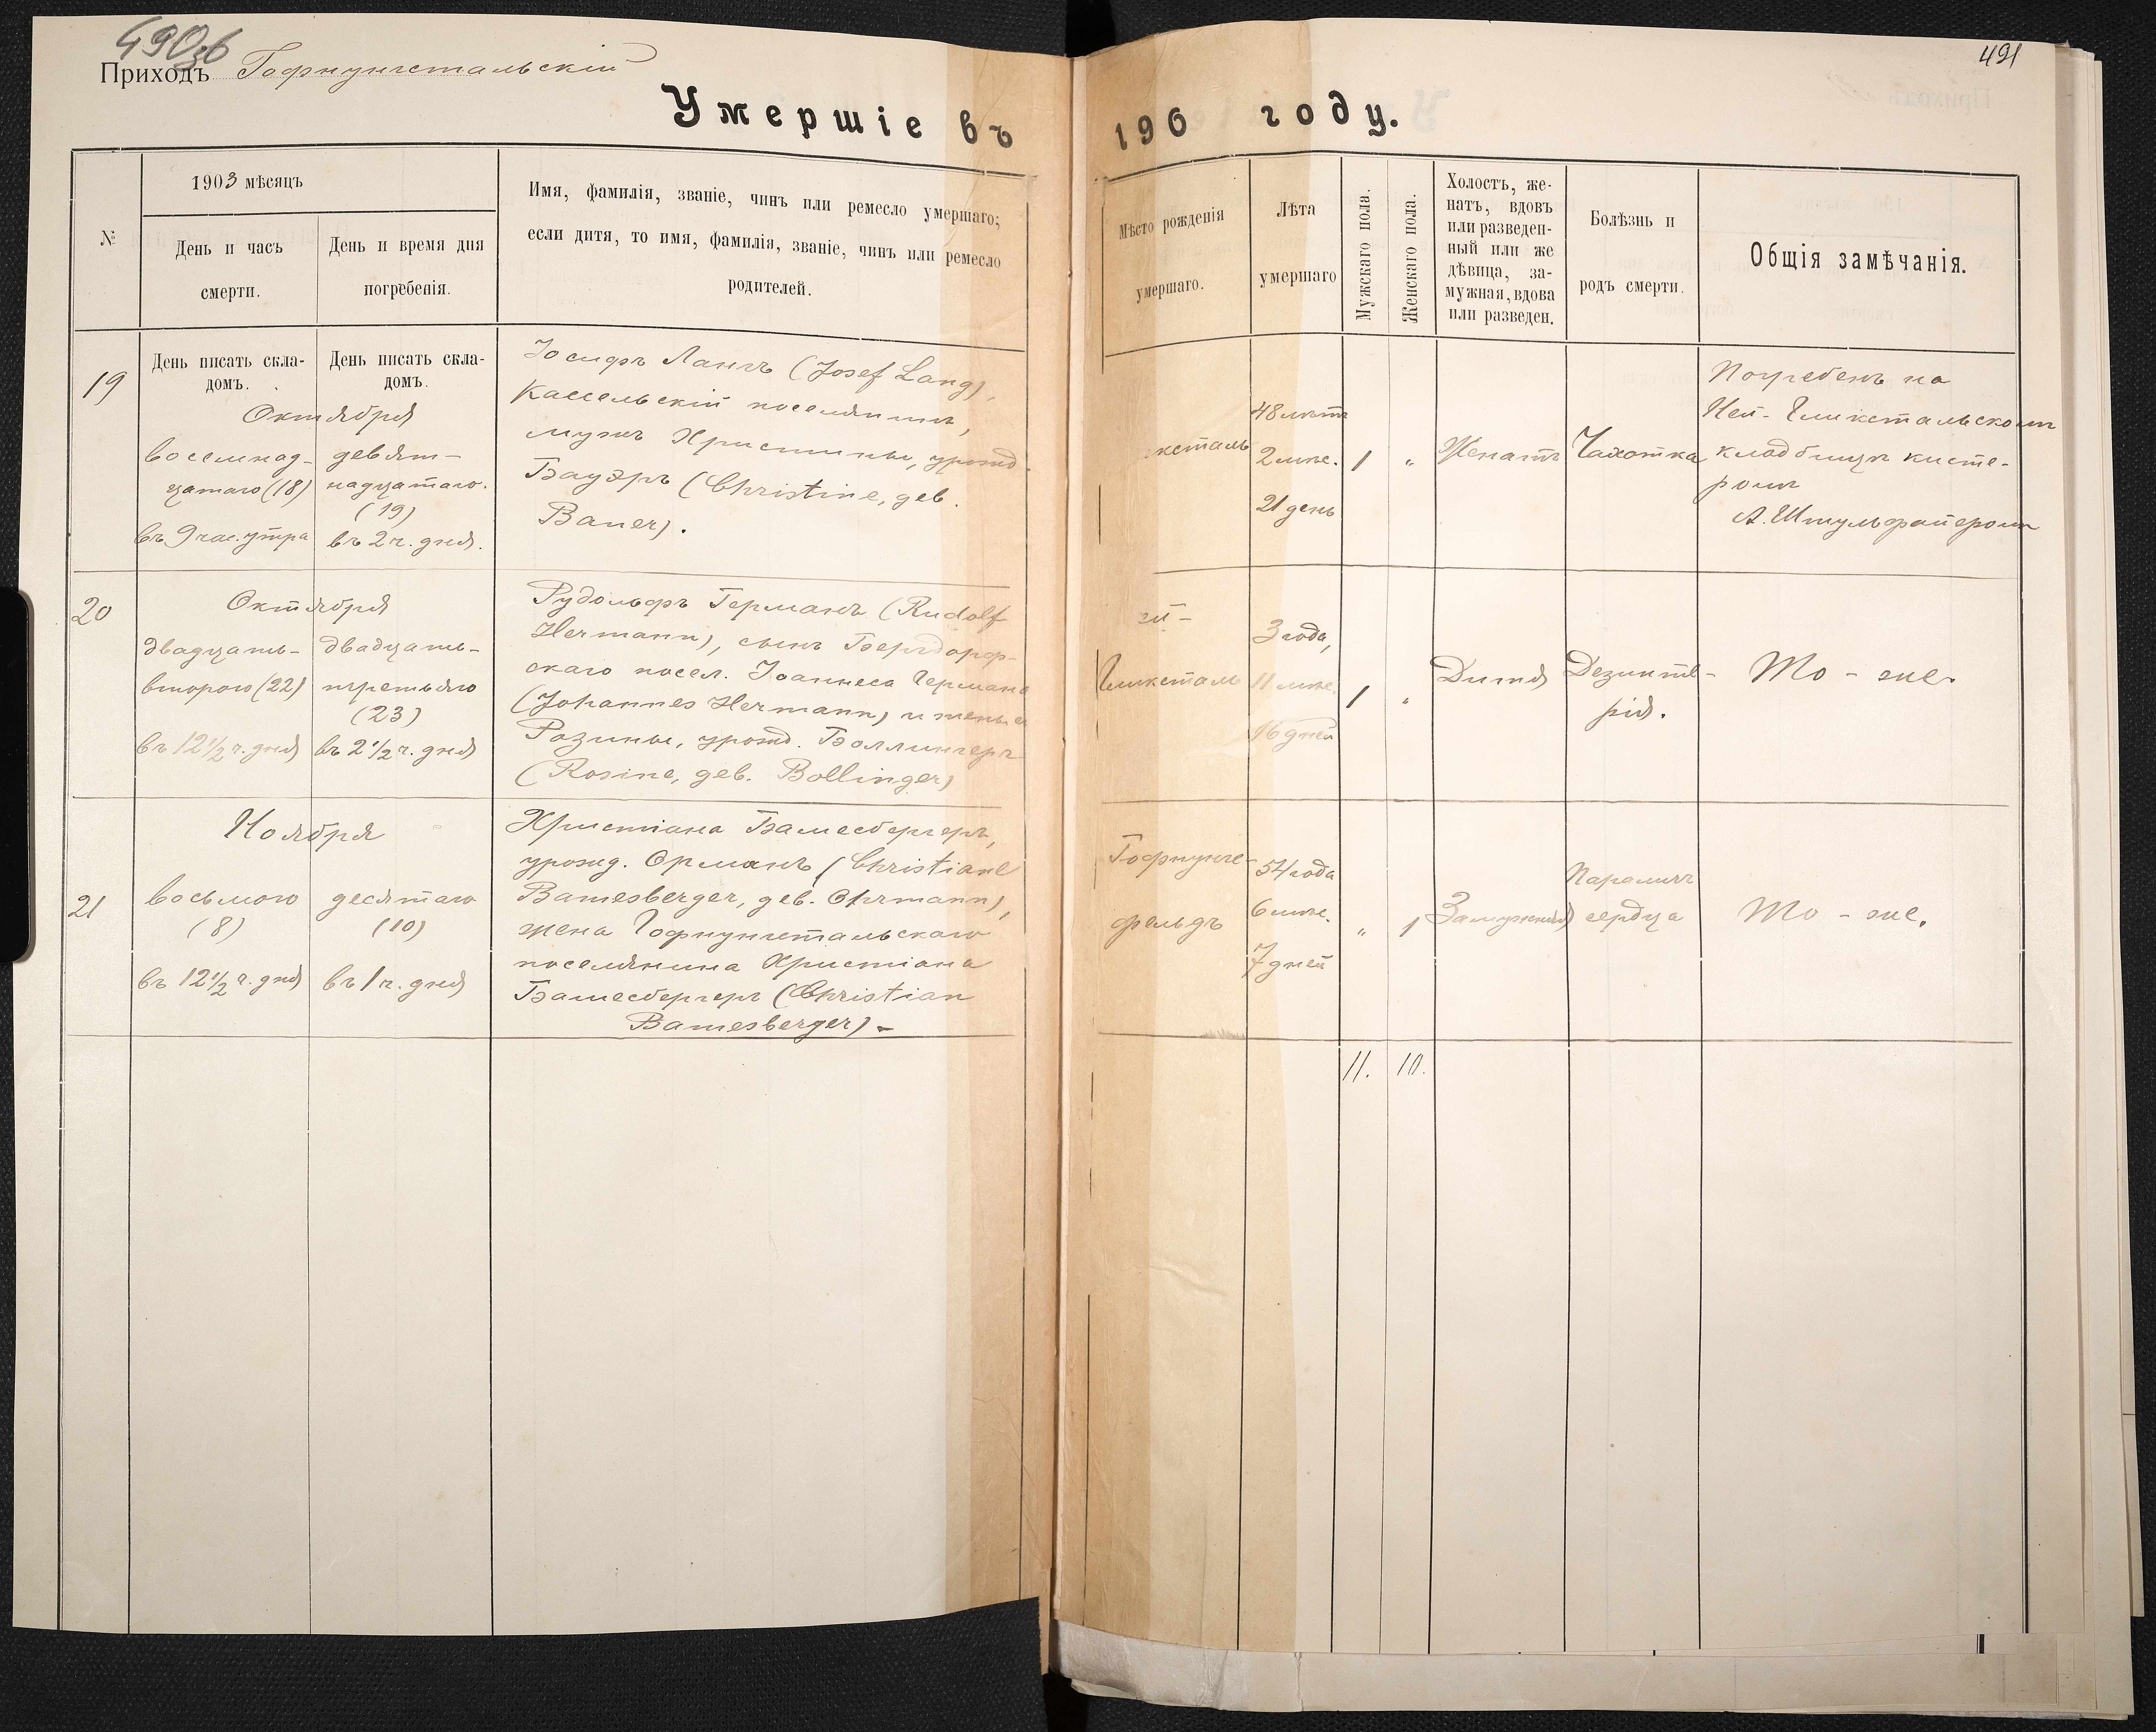 490об
491
Приходъ Гофнунгстальскій
Умершіе въ 190 году.
№
1903 мѣсяцъ
День и часъ
смерти.
День и время дня
погребенія.
Имя, фамилія, званіе, чинъ или ремесло умершаго;
если дитя, то имя, фамилія, званіе, чинъ или ремесло
родителей.
Мѣсто рожденія
умершаго.
Лѣта
умершаго
Мужскаго пола.
Женскаго пола.
Холостъ, же-
натъ, вдовъ
или разведен-
ный или же
дѣвица, за-
мужная, вдова
или разведен.
Болѣзнь и
родъ смерти.
Общія замѣчанія.
День писать скла-
домъ.
День писать скла-
домъ.
19
Октября
восемнад-
цатаго (18)
въ 9 час. утра
девят-
надцатаго.
(19)
въ 2 ч. дня.
Іосифъ Лангъ (Josef Lang),
Кассельскій поселянинъ,
мужъ Христины, урожд.
Бауэръ (Christine, geb.
Bauer).
ксталь
48 лѣтъ
2 мѣс.
21 день
1
"
Женатъ
Чахотка
Погребенъ на
Ней-Гликстальскомъ
кладбищѣ кисте-
ромъ
А. Штульфайеромъ
20
Октября
двадцать-
второго (22)
въ 12 1/2 ч. дня
двадцать-
третьяго
(23)
въ 2 1/2 ч. дня
Рудольфъ Германъ (Rudolf
Hermann), сынъ Бергдорф-
скаго посел. Іоаннеса Германа
(Johannes Hermann) и жены его
Розины, урожд. Боллингеръ
(Rosine, geb. Bollinger)
ей-
Гликсталь
3 года,
11 мѣс.
16 дней
1
"
Дитя
Дезинте-
рія.
То-же.
21
Ноября
восьмого
(8)
въ 12 1/2 ч. дня
десятаго
(10)
въ 1 ч. дня
Христіана Бамесбергеръ,
урожд. Орманъ (Christiane
Bamesberger, geb. Ohrmann),
жена Гофнунгстальскаго
поселянина Христіана
Бамесбергеръ (Christian
Bamesberger).-
Гофнунгс-
фельдъ
54 года
6 мѣс.
7 дней
"
1
Замужняя
Параличъ
сердца
То-же.
11. 10.